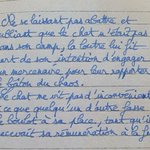 Ne se laissant pas abattre et
oubliant que le chat n'était pas
dans son camp, la loutre lui fit
part de son intention d'engager
un mercenaire pour leur rapporter
le bâton du chaos.
Le chat ne vit pas d'inconvénient
à ce que quelqu'un d'autre fasse
le boulot à sa place, tant qu'il
recevait sa rémunération à la fin